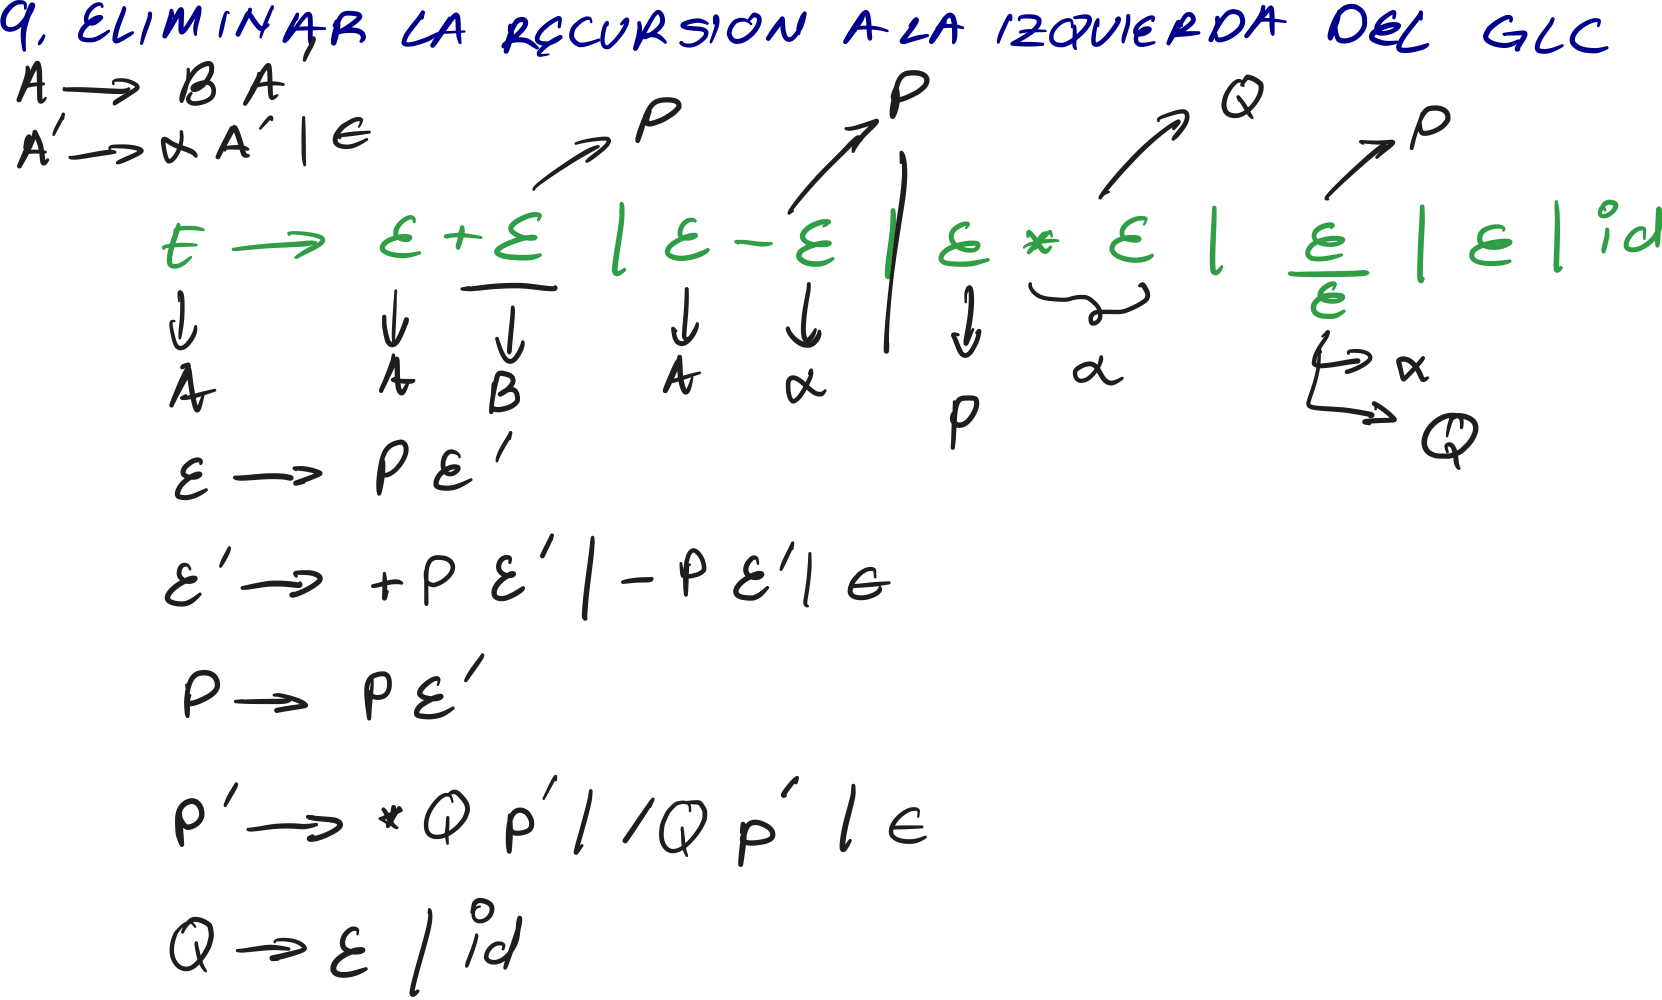 9. ELIMINAR LA RECURSION A LA IZQUIERDA DEL GLC
A → B A'
A' → α A' | ϵ
P P Q P
E → E + E | E - E | E * E | E / E | E | id
A A B A α P α α Q
E → P E'
E' → + P E' | - P E' | ϵ
P → P E'
P' → * Q P' | / Q P' | ϵ
Q → E | id